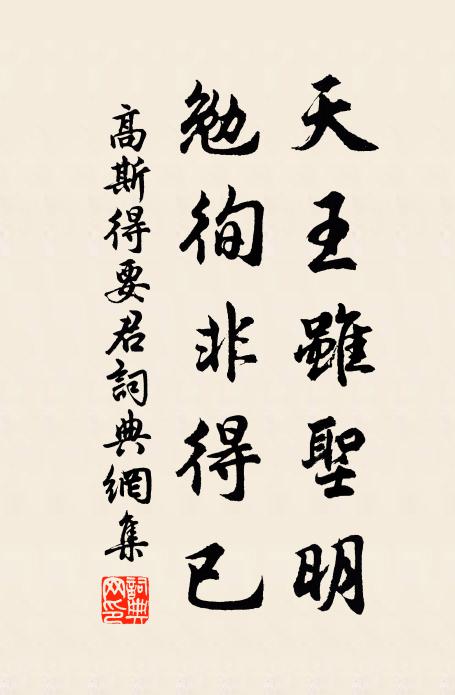 天王雖聖明
勉徇非得已
高斯得要君詞典網集
詞典网印